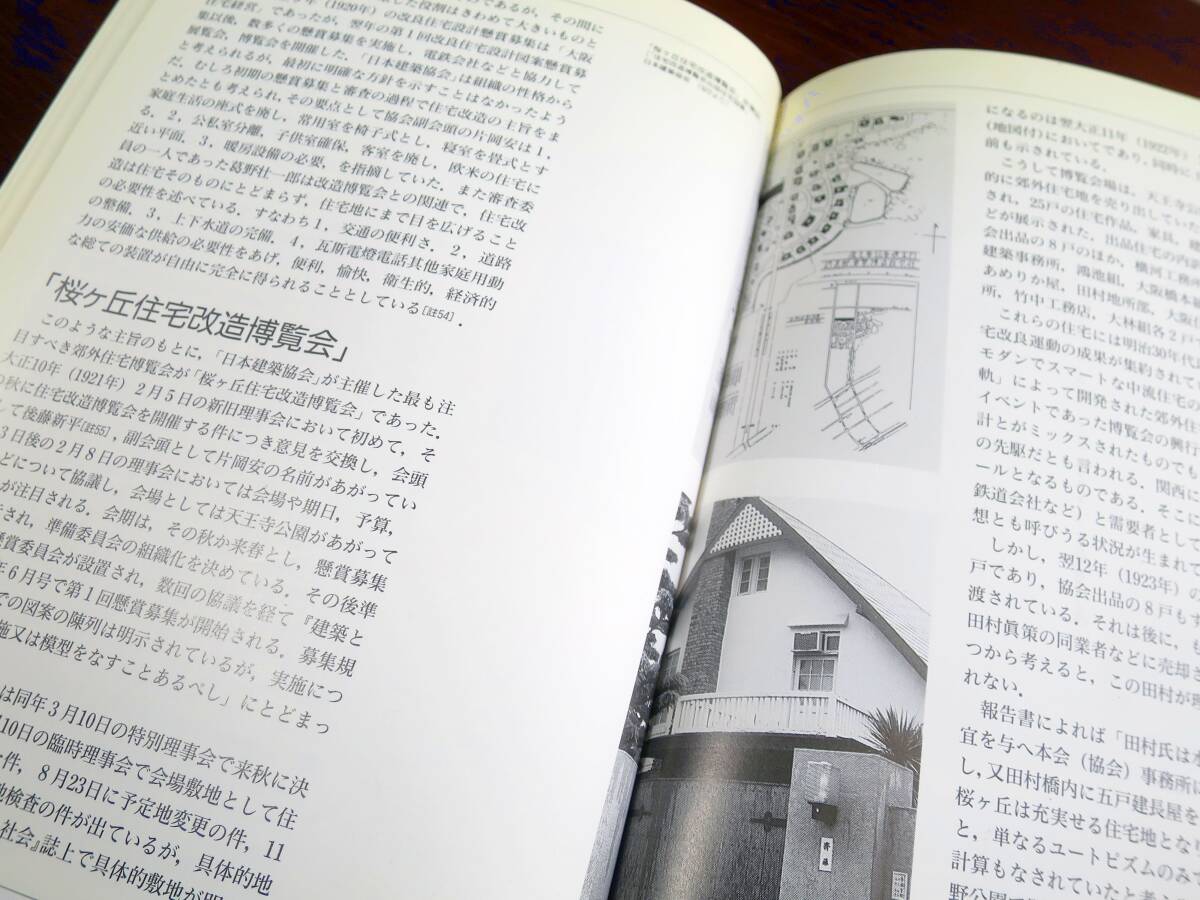 した役割はきわめて大きいものと
(1920年)の改良住宅設計懸賞募集は「大阪
住宅経営」であったが,翌年の第1回改良住宅設計図案懸賞募
集以後,数多くの懸賞募集を実施し,電鉄会社などと協力して
展覧会,博覧会を開催した.「日本建築協会」は組織の性格から
と考えられるが,最初に明確な方針を示すことはなかったよう
だ.むしろ初期の懸賞募集と審査の過程で住宅改造の主旨をま
とめたとも考えられ,その要点として協会副会頭の片岡安は1,
家庭生活の座式を廃し,常用室を椅子式とし,寝室を畳式とす
る.2,公私室分離,子供室確保,客室を廃し,欧米の住宅に
近い平面.3,暖房設備の必要,を指摘していた.また審査委
員の一人であった葛野壮一郎は改造博覧会との関連で,住宅改
造は住宅そのものにとどまらず,住宅地にまで目を広げること
の必要性を述べている.すなわち1,交通の便利さ,2,道路
の整備.3,上下水道の完備.4,瓦斯電燈電話其他家庭用動
力の安価な供給の必要性をあげ,便利,愉快,衛生的,経済的
な総ての装置が自由に完全に得られることとしている[註54].
「桜ヶ丘住宅改造博覧会」
このような主旨のもとに,「日本建築協会」が主催した最も注
目すべき郊外住宅博覧会が「桜ヶ丘住宅改造博覧会」であった.
大正10年(1921年)2月5日の新旧理事会において初めて,そ
の秋に住宅改造博覧会を開催する件につき意見を交換し,会頭
して後藤新平[註55],副会頭として片岡安の名前があがってい
3日後の2月8日の理事会においては会場や期日,予算,
どについて協議し,会場としては天王寺公園があがって
が注目される.会期は,その秋か来春とし,懸賞募集
され,準備委員会の組織化を決めている.その後準
懸賞委員会が設置され,数回の協議を経て『建築と
年6月号で第1回懸賞募集が開始される.募集規
での図案の陳列は明示されているが,実施につ
施又は模型をなすことあるべし」にとどまっ
は同年3月10日の特別理事会で来秋に決
月10日の臨時理事会で会場敷地として住
件,8月23日に予定地変更の件,11
地検査の件が出ているが,具体的地
社会』誌上で具体的敷地が明
になるのは翌大正11年(1922年)
(地図付)においてであり,同時に
前も示されている.
こうして博覧会場は,天王寺公
的に郊外住宅地を売り出していた
され,25戸の住宅作品,家具,
どが展示された.出品住宅の内訳
会出品の8戸のほか,横河工務
建築事務所,鴻池組,大阪橋本
あめりか屋,田村地所部,大阪
所,竹中工務店,大林組各2戸
これらの住宅には明治30年代
宅改良運動の成果が集約されて
モダンでスマートな中流住宅の
軌」によって開発された郊外住
イベントであった博覧会の興行
計とがミックスされたものでも
の先駆だとも言われる.関西に
ールとなるものである.そこに
鉄道会社など)と需要者として
想とも呼びうる状況が生まれて
しかし,翌12年(1923年)の
戸であり,協会出品の8戸も
渡されている.それは後に,も
田村眞策の同業者などに売却さ
つから考えると,この田村が理
れない.
報告書によれば「田村氏は本
宜を与へ本会(協会)事務所に
し,又田村橋内に五戸建長屋を
桜ヶ丘は充実せる住宅地となり
と,単なるユートピズムのみで
計算もなされていたと考え
野公園で
齊藤